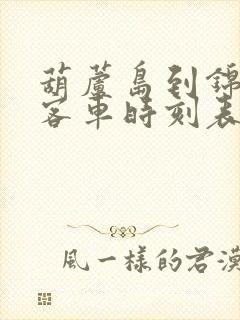 葫蘆島到錦
客車時刻表
風一樣的君漢